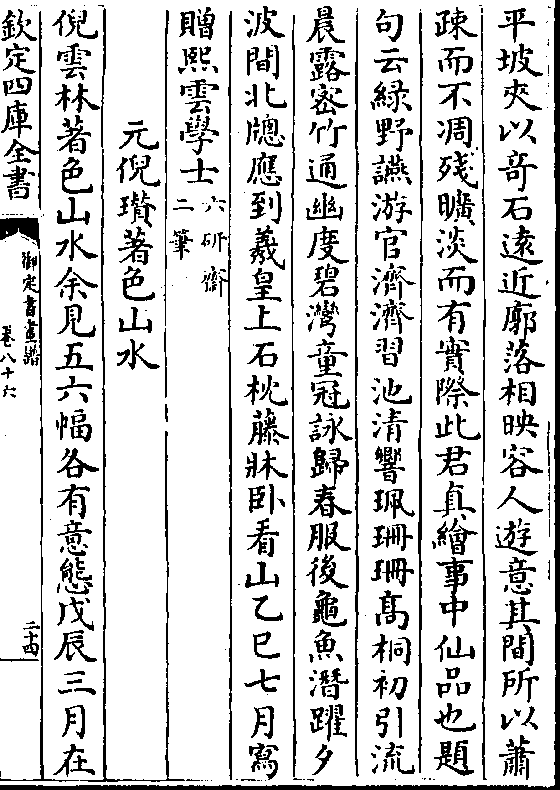 平坡夾以竒石遠近廓落相映容人遊意其間所以蕭
疎而不凋殘曠淡而有實際此君真繪事中仙品也題
句云緑野讌游官濟濟習池清響珮珊珊髙桐初引流
晨露宻竹通幽度碧灣童冠詠歸春服後龜魚潛躍夕
波間北牕應到羲皇上石枕藤牀卧看山乙巳七月寫
贈熙雲學士六研齋二筆
元倪瓉著色山水
倪雲林著色山水余見五六幅各有意態戊辰三月在
欽定四庫全書
御定書畫譜
卷八十六
二十四